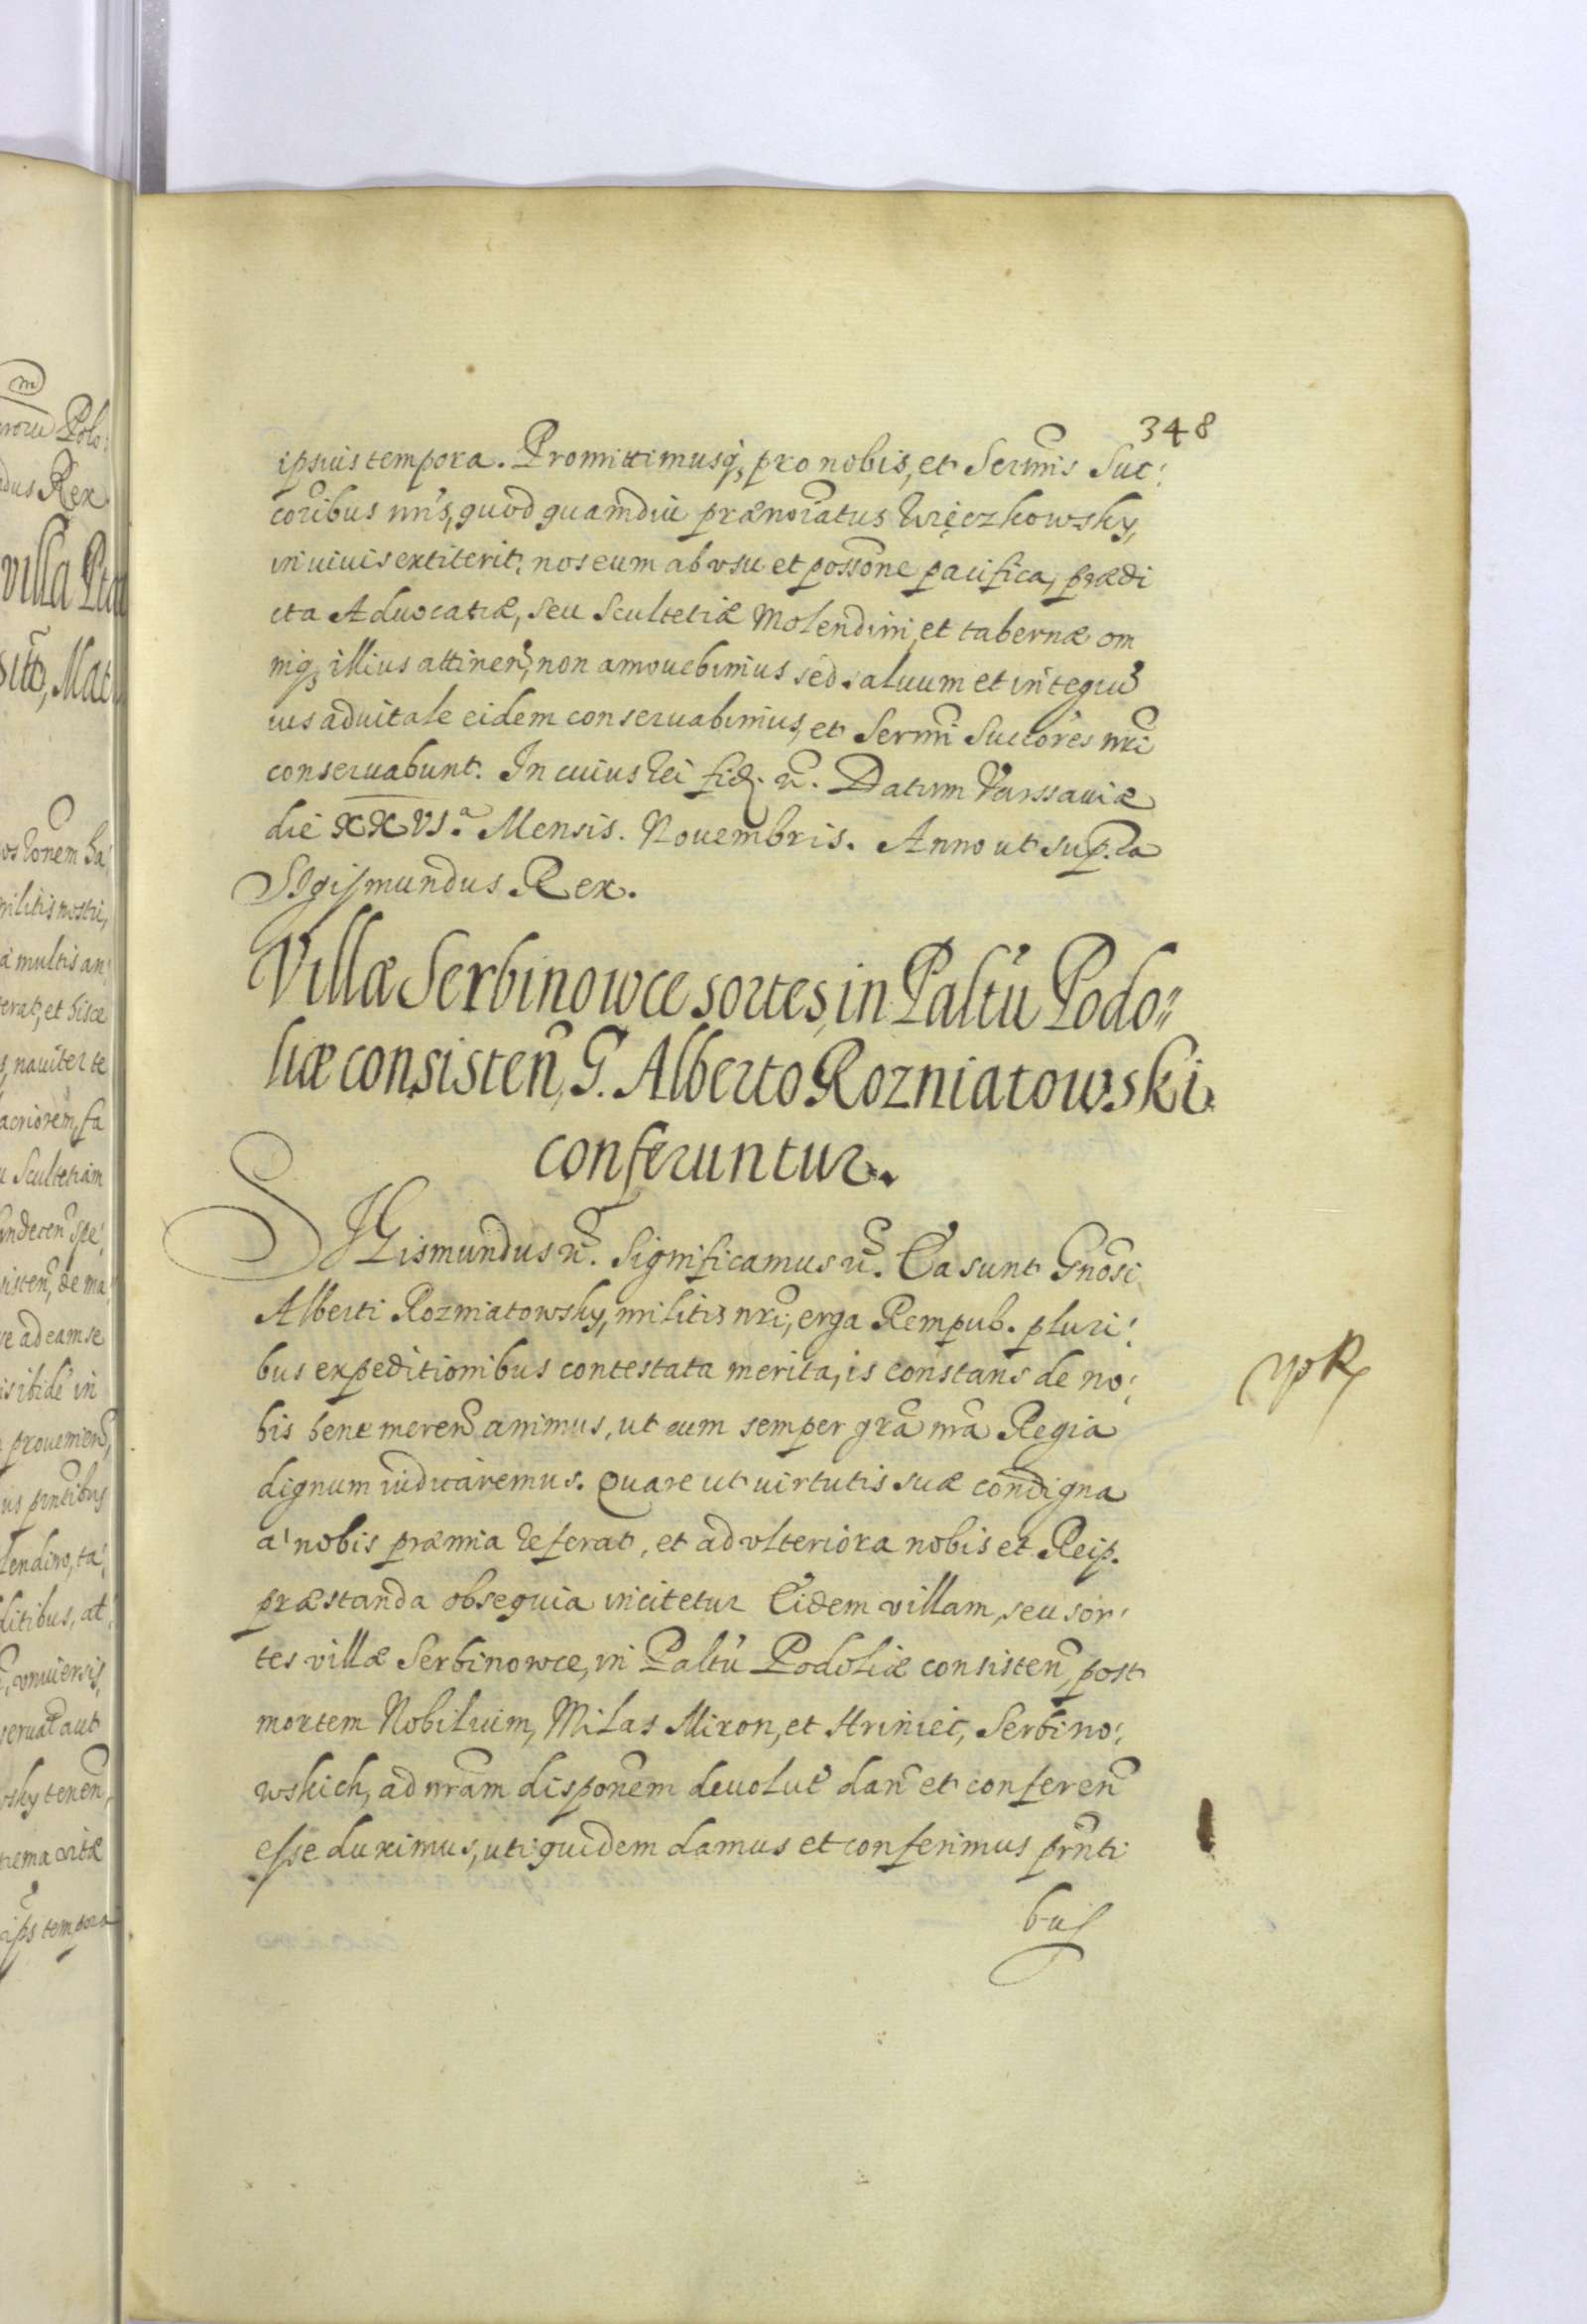 348
ipsius tempora. Promittimusq; pro nobis, et Serm̃is Suc:
cor̃ibus nr̃is, quod quamdiu prænoĩatus Więczkowsky,
in uiuis extiterit, nos eum ab vsu et possõne pacifica, prædi
cta Aduocatiæ, seu Scultetiæ Molendini, et tabernæ om
niq; illius attineñ, non amouebimus sed saluum et integrũ
ius aduitale eidem conseruabimus, et Serm̃i Succões nr̃i
conseruabunt. In cuius rei fid. ꝛc̃. Datum Varssauiæ
die XXVI.ª Mensis. Nouembris. Anno ut sup.ra
SIgismundus Rex.
Villæ Serbinowce sortes, in Paltũ Podo=
liæ consisteñ, G. Alberto Rozniatowski
conferuntur.
SIGismundus ꝛc̃. Significamus ꝛc̃. Ea sunt Gnõsi
Alberti Rozniatowsky, militis nr̃i, erga Rempub. pluri:
bus expeditionibus contestata merita, is constans de no:
bis bene mereñ animus, ut eum semper grã nr̃a Regia
dignum iudicaremus. Quare ut uirtutis suæ condigna
a' nobis præmia referat, et ad vlteriora nobis et Reip.
præstanda obsequia incitetur Eidem villam, seu sor:
tes villæ Serbinowce, in Paltũ Podoliæ consisteñ, post
mortem Nobilium, Milas Miron, et Hriniec, Serbino:
wskich, ad nr̃am dispõnem deuolut̃ dañ et confereñ
esse duximus, uti quidem damus et conferimus pr̃nti
bus